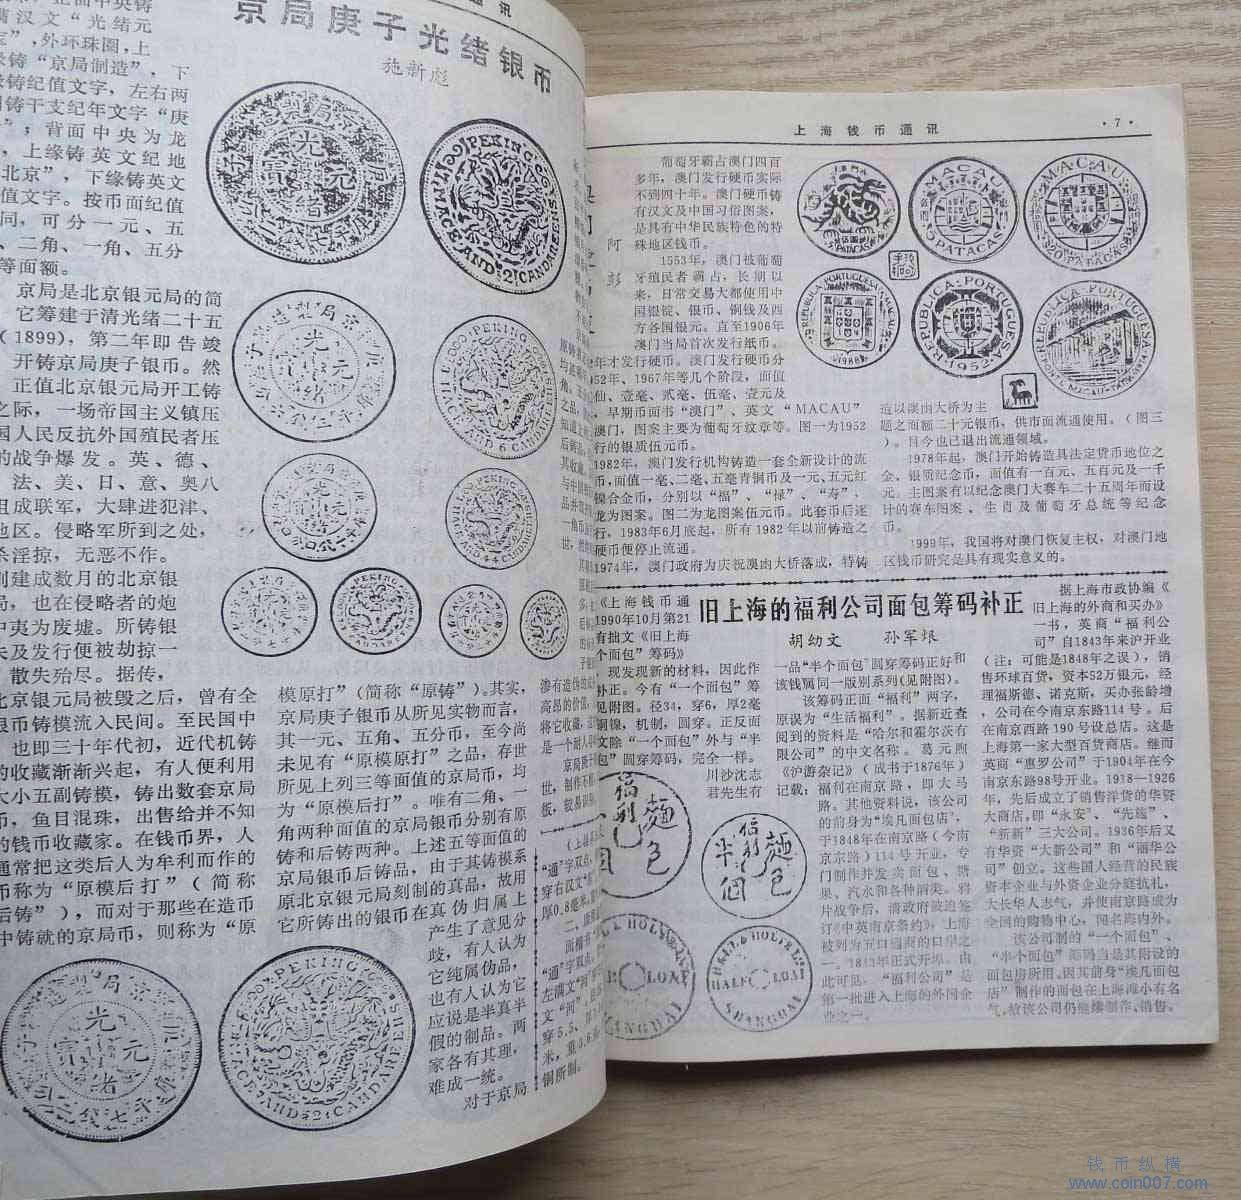 通讯
京局庚子光绪银币
施新彪
汉文“光绪元
”,外环珠圈,上
铸“京局制造”，下
铸纪值文字，左右两
铸干支纪年文字“庚
”；背面中央为龙
，上缘铸英文纪地
北京”，下缘铸英文
值文字。按币面纪值
同，可分一元、五
、二角、一角、五分
等面额。
京局是北京银元局的简
它筹建于清光绪二十五
（1899），第二年即告竣
开铸京局庚子银币。然
正值北京银元局开工铸
之际，一场帝国主义镇压
国人民反抗外国殖民者压
的战争爆发。英、德、
法、美、日、意、奥八
组成联军，大肆进犯津、
地区。侵略军所到之处，
杀淫掠，无恶不作。
建成数月的北京银
局，也在侵略者的炮
中夷为废墟。所铸银
未及发行便被劫掠一
散失殆尽。据传，
北京银元局被毁之后，曾有全
银币铸模流入民间。至民国中
也即三十年代初，近代机铸
的收藏渐渐兴起，有人便利用
大小五副铸模，铸出数套京局
币，鱼目混珠，出售给并不知
的钱币收藏家。在钱币界，人
通常把这类后人为牟利而作的
币称为“原模后打”（简称
后铸”），而对于那些在造币
中铸就的京局币，则称为“原
模原打”（简称“原铸”）。其实，
京局庚子银币从所见实物而言，
其一元、五角、五分币，至今尚
未见有“原模原打”之品，存世
所见上列三等面值的京局币，均
为“原模后打”。唯有二角、一
角两种面值的京局银币分别有原
铸和后铸两种。上述五等面值的
京局银币后铸品，由于其铸模系
原北京银元局刻制的真品，故用
它所铸出的银币在真伪归属上
产生了意见分
歧，有人认为
它纯属伪品，
也有人认为它
应说是半真半
假的制品。两
家各有其理，
难成一统。
对于京局
上海钱币通讯
·7·
阿彭
葡萄牙霸占澳门四百
多年，澳门发行硬币实际
不到四十年。澳门硬币铸
有汉文及中国习俗图案，
是具有中华民族特色的特
殊地区钱币。
1553年，澳门被葡萄
牙殖民者霸占，长期以
来，日常交易大都使用中
国银锭、银币、铜钱及西
方各国银元。直至1906年
澳门当局首次发行纸币。
年才发行硬币。澳门发行硬币分
52年、1967年等几个阶段，面值
仙、壹毫、贰毫、伍毫、壹元及
，早期币面书“澳门”、英文“MACAU”
澳门，图案主要为葡萄牙纹章等。图一为1952
行的银质伍元币。
1982年，澳门发行机构铸造一套全新设计的流
币，面值一毫、二毫、五毫青铜币及一元、五元红
镍合金币，分别以“福”、“禄”、“寿”，
龙为图案。图二为龙图案伍元币。此套币后逐
行，1983年6月底起，所有1982年以前铸造之
硬币便停止流通。
1974年，澳门政府为庆祝澳氹大桥落成，特铸
造以澳氹大桥为主
题之面额二十元银币，供市面流通使用。（图三
）。目今也已退出流通领域。
1978年起，澳门开始铸造具法定货币地位之
金、银质纪念币，面值有一百元、五百元及一千
元。主图案有以纪念澳门大赛车二十五周年而设
计的赛车图案、生肖及葡萄牙总统等纪念
币。
1999年，我国将对澳门恢复主权，对澳门地
区钱币研究是具有现实意义的。
旧上海的福利公司面包筹码补正
胡幼文 孙军垠
《上海钱币通
1990年10月第21
有拙文《旧上海
个面包”筹码》
现发现新的材料，因此作
补正。今有“一个面包”筹
见附图。径34，穿6，厚2毫
铜镍，机制，圆穿。正反面
文除“一个面包”外与“半
包”圆穿筹码，完全一样。
川沙沈志
君先生有
一品“半个面包”圆穿筹码正好和
该钱属同一版别系列(见附图)。
该筹码正面“福利”两字，
原误为“生活福利”。据新近查
阅到的资料是“哈尔和霍尔茨有
限公司”的中文名称。葛元煦
《沪游杂记》（成书于1876年）
记载：福利在南京路，即大马
路。其他资料说，该公司
的前身为“埃凡面包店”，
于1848年在南京路（今南
京东路）114号开业，专
门制作并发卖面包、糖
果、汽水和各种酒类。鸦
片战争后，清政府被迫签
订《中英南京条约》，上海
被列为五口通商的口岸之
一。1843年正式开埠。由
此可见，“福利公司”是
第一批进入上海的外国企
业之一。
据上海市政协编《
旧上海的外商和买办》
一书，英商“福利公
司”自1843年来沪开业
（注：可能是1848年之误），销
售环球百货，资本52万银元，经
理福斯德、诺克斯，买办张龄增
，公司在今南京东路114号。后
在南京西路190号设总店。这是
上海第一家大型百货商店。继而
英商“惠罗公司”于1904年在今
南京东路98号开业。1918—1926
年，先后成立了销售洋货的华资
大商店，即“永安”、“先施”、
“新新”三大公司。1936年后又
有华资“大新公司”和“丽华公
司”创立。这些国人经营的民族
资本企业与外资企业分庭抗礼，
大长华人志气，并使南京路成为
全国的购物中心，闻名海内外。
该公司制的“一个面包”、
“半个面包”筹码当是其附设的
面包房所用。因其前身“埃凡面包
店”制作的面包在上海滩小有名
气，故该公司仍继续制作、销售。
钱币纵横
www.coin007.com